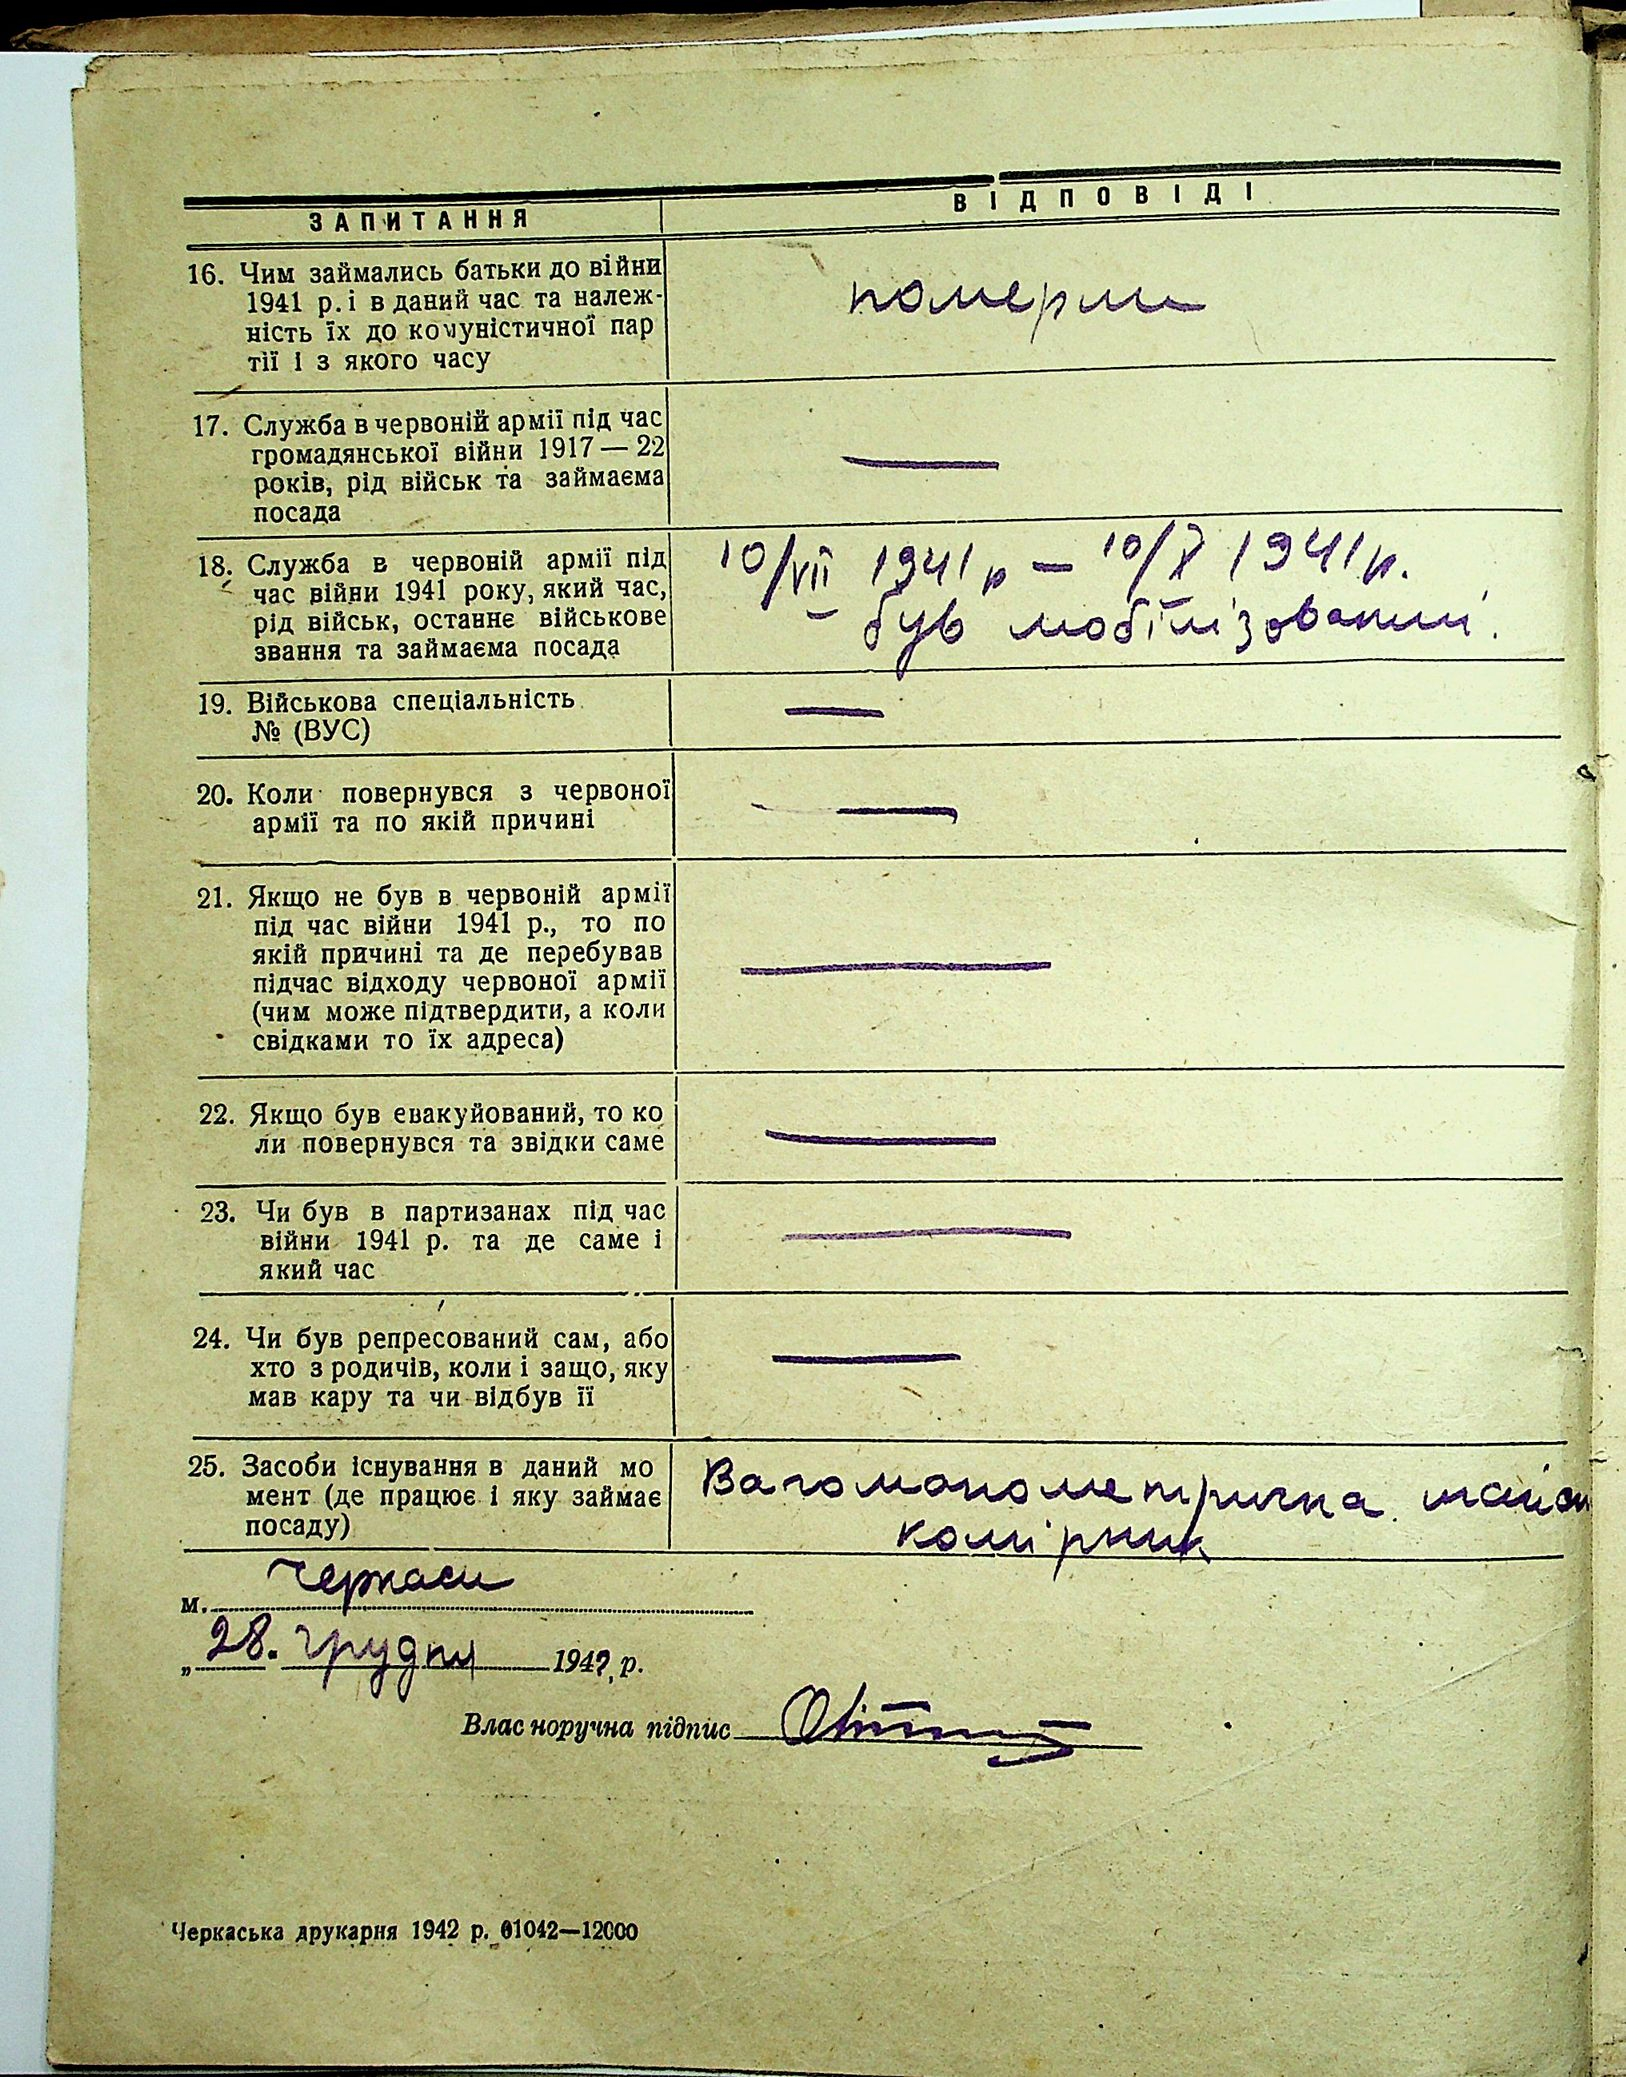 ЗАПИТАННЯ
ВІДПОВІДІ
16. Чим займались батьки до війни
1941 р. і в даний час та належ-
ність їх до комуністичної пар
тії і з якого часу
померли
17. Служба в червоній армії під час
громадянської війни 1917 — 22
років, рід військ та займаєма
посада
—
18. Служба в червоній армії під
час війни 1941 року, який час,
рід військ, останнє військове
звання та займаєма посада
10/VII 1941 р — 10/X 1941 р.
– був мобілізований.
19. Військова спеціальність
№ (ВУС)
—
20. Коли повернувся з червоної
армії та по якій причині
—
21. Якщо не був в червоній армії
під час війни 1941 р., то по
якій причині та де перебував
підчас відходу червоної армії
(чим може підтвердити, а коли
свідками то їх адреса)
—
22. Якщо був евакуйований, то ко
ли повернувся та звідки саме
—
23. Чи був в партизанах під час
війни 1941 р. та де саме і
який час
—
24. Чи був репресований сам, або
хто з родичів, коли і защо, яку
мав кару та чи відбув її
—
25. Засоби існування в даний мо
мент (де працює і яку займає
посаду)
Вагоманометрична
комірник
м. Черкаси
„ 28. грудня 1942, р.
Власноручна підпис
Черкаська друкарня 1942 р. 01042—12000